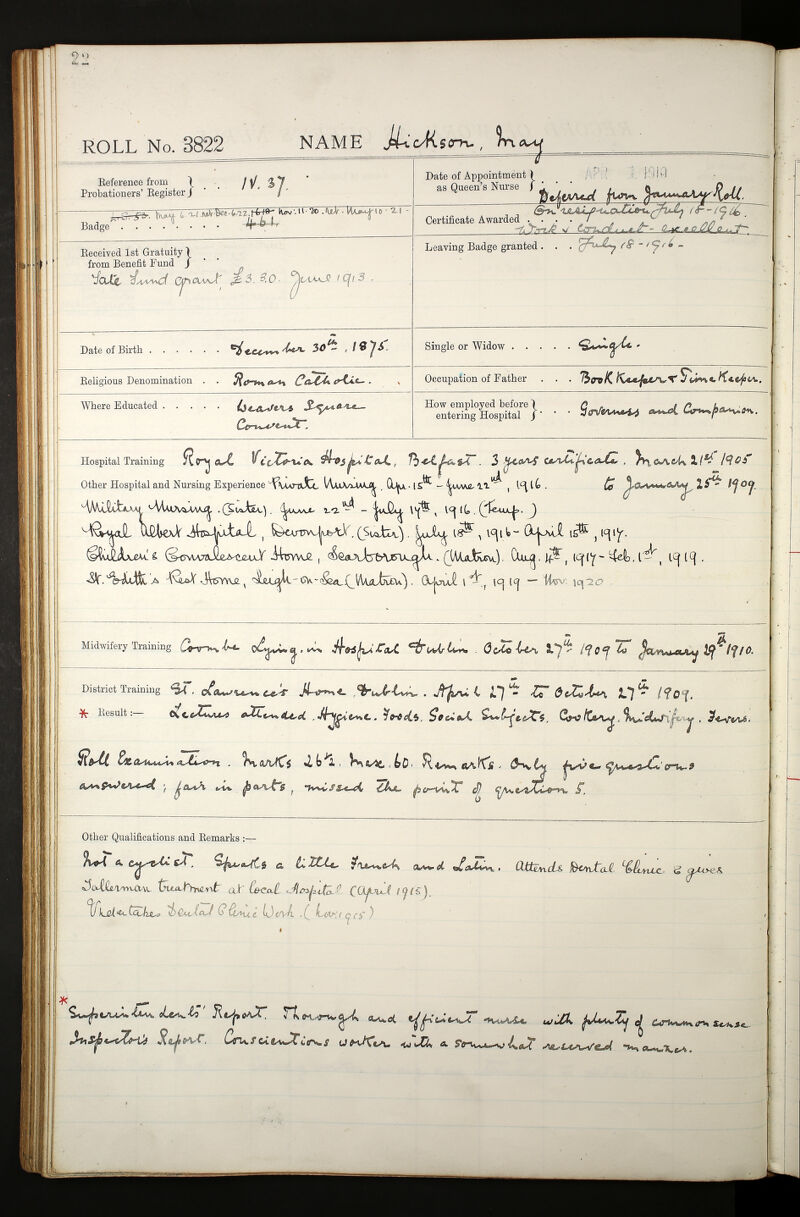 22
ROLL No. 3822 NAME Hickson, May
Reference from Probationers' Register } . . IV. 37.
Date of Appointment as Queen's Nurse } . . APR 1 1910
Deferred from January Roll.
Badge . . . . . . . 461
Certificate Awarded . . On resignation July 18-1916.
Work & conduct - excellent.
Received 1st Gratuity from Benefit Fund } . .
Tate Fund grant £3.3.0. June 1913.
Leaving Badge granted . . . July 18 - 1916 -
Date of Birth . . . . . . December 30th, 1875.
Single or Widow . . . . . Single.
Religious Denomination . . Roman Catholic.
Occupation of Father . . . Book Keeper & Time Keeper.
Where Educated . . . . . Square
Convent.
How employed before entering Hospital } . . Governess and Companion.
Hospital Training Royal Victoria Hospital, Belfast. 3 years certificate. March 21st 1905
to January 25th 1909.
Other Hospital and Nursing Experience Private Nursing. Apr. 15th - June 22nd, 1916.
Military Nursing. (Sister). June 22nd - July 17th, 1916. (Temp.)
Royal Albert Hospital, Devonport. (Sister). July 18th, 1916 - April 15th, 1917.
Children's Convalescent Home, Scarborough. (Matron). Aug. 4th, 1917 - Feb. 1st, 1919.
St. Edith's Rest Home, Leigh-on-Sea (Matron). April 1st, 1919 - Nov: 1920
Midwifery Training Coombe Lying-in Hospital Dublin. October 27th 1909 to January 29th 1910.
District Training St. Lawrence's Home, Dublin. April 27th to October 27th 1909.
* Result:— Lectures attended. Hygiene. Foods. Social Subjects. Cookery. Midwifery. Fevers.
Roll Examination. Marks 26½. Max. 60. Remarks. Only five questions
answered; fair in parts, missed the point of question 5.
Other Qualifications and Remarks:—
Not a cyclist. Speaks a little French and Latin. Attends Dental Clinic & gives
Tallerman treatment at local Hospital (April 1915).
Undertakes Dental Clinic Work. (Nov: 1915)
* Superintendents' Report. Thorough and efficient nurse with plenty of common sense.
Inspector's Report. Conscientious worker with a somewhat reserved manner.